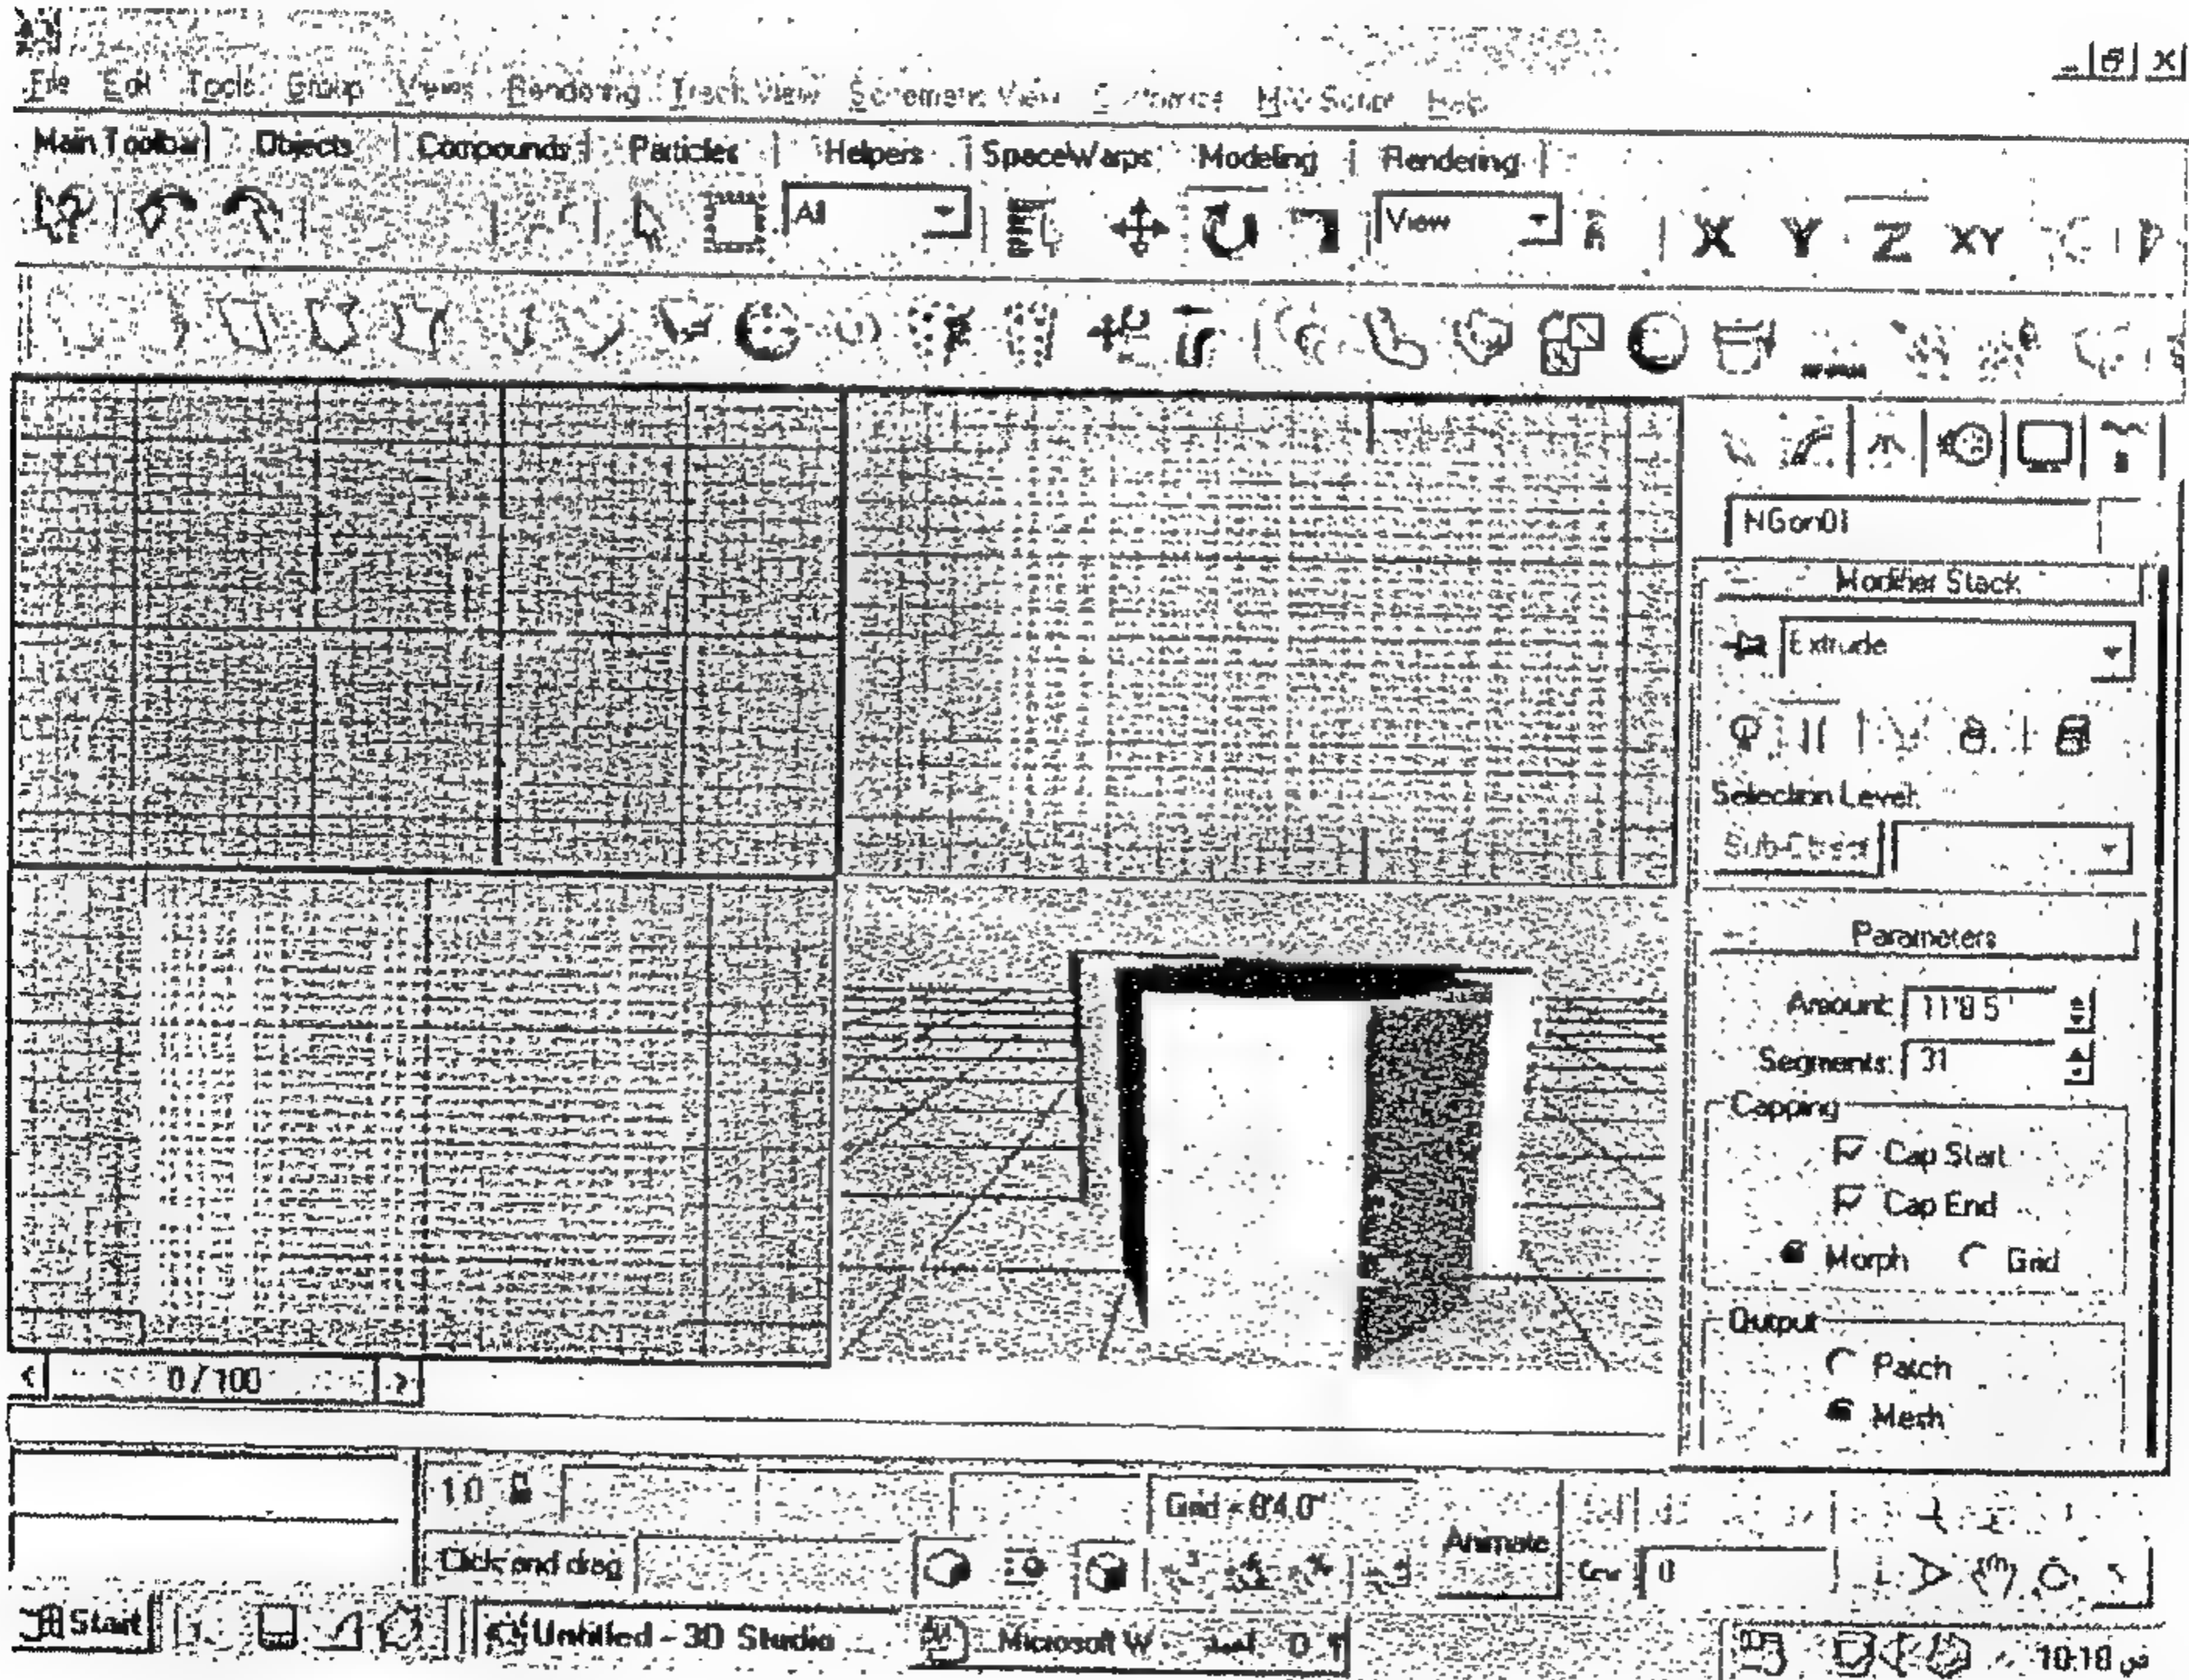 File Edit Tools Group Views Rendering Track View Schematic View Help
Main Toolbar Objects Compounds Particles Helpers SpaceWarps Modeling Rendering
All View X Y Z XY
NGon01
Modifier Stack
Extrude
Selection Level:
Sub-Object
Parameters
Amount:
Segments: 31
Capping
Cap Start
Cap End
Morph Grid
Output
Patch
Mesh
0 / 100
Click and drag
Animate
0
Start Untitled - 3D Studio ... Microsoft W 10:18 ص